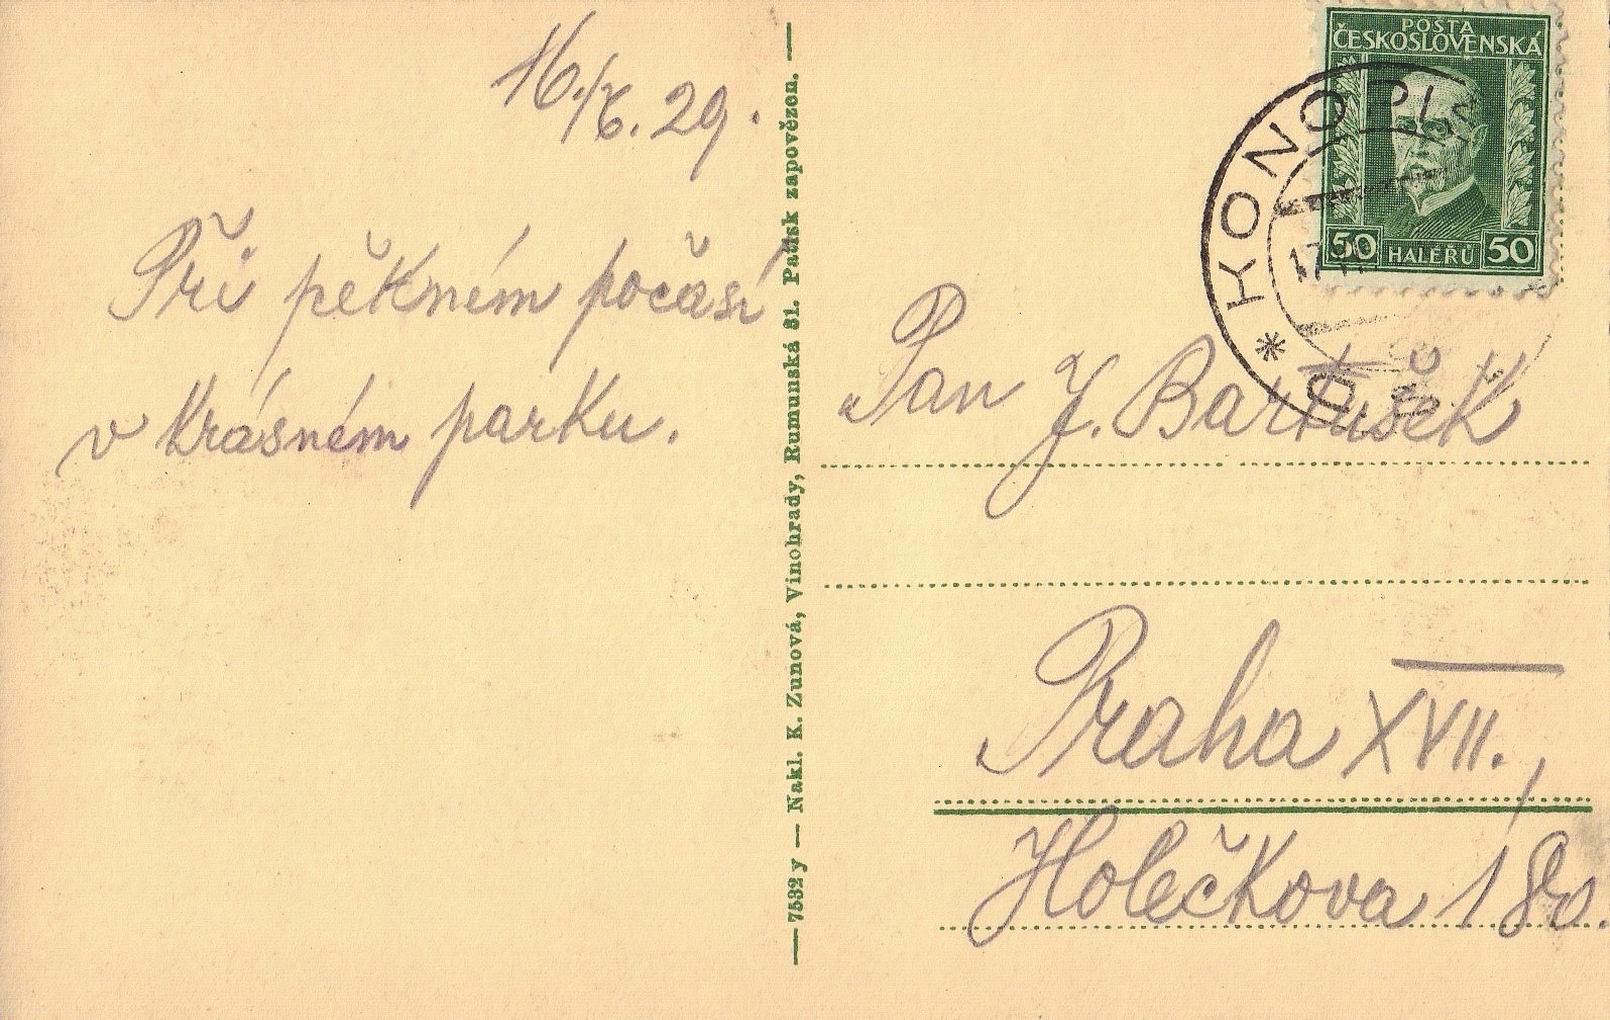 16./6. 29.
Při pěkném počasí
v krásném parku.
— 7532 y — Nakl. K. Zunová, Vinohrady, Rumunská 31. Patisk zapovězen. —
POŠTA
ČESKOSLOVENSKÁ
50 HALÉŘŮ 50
KONOPI
Pan J. Bartušek
Praha XVII.,
Holečkova 180.